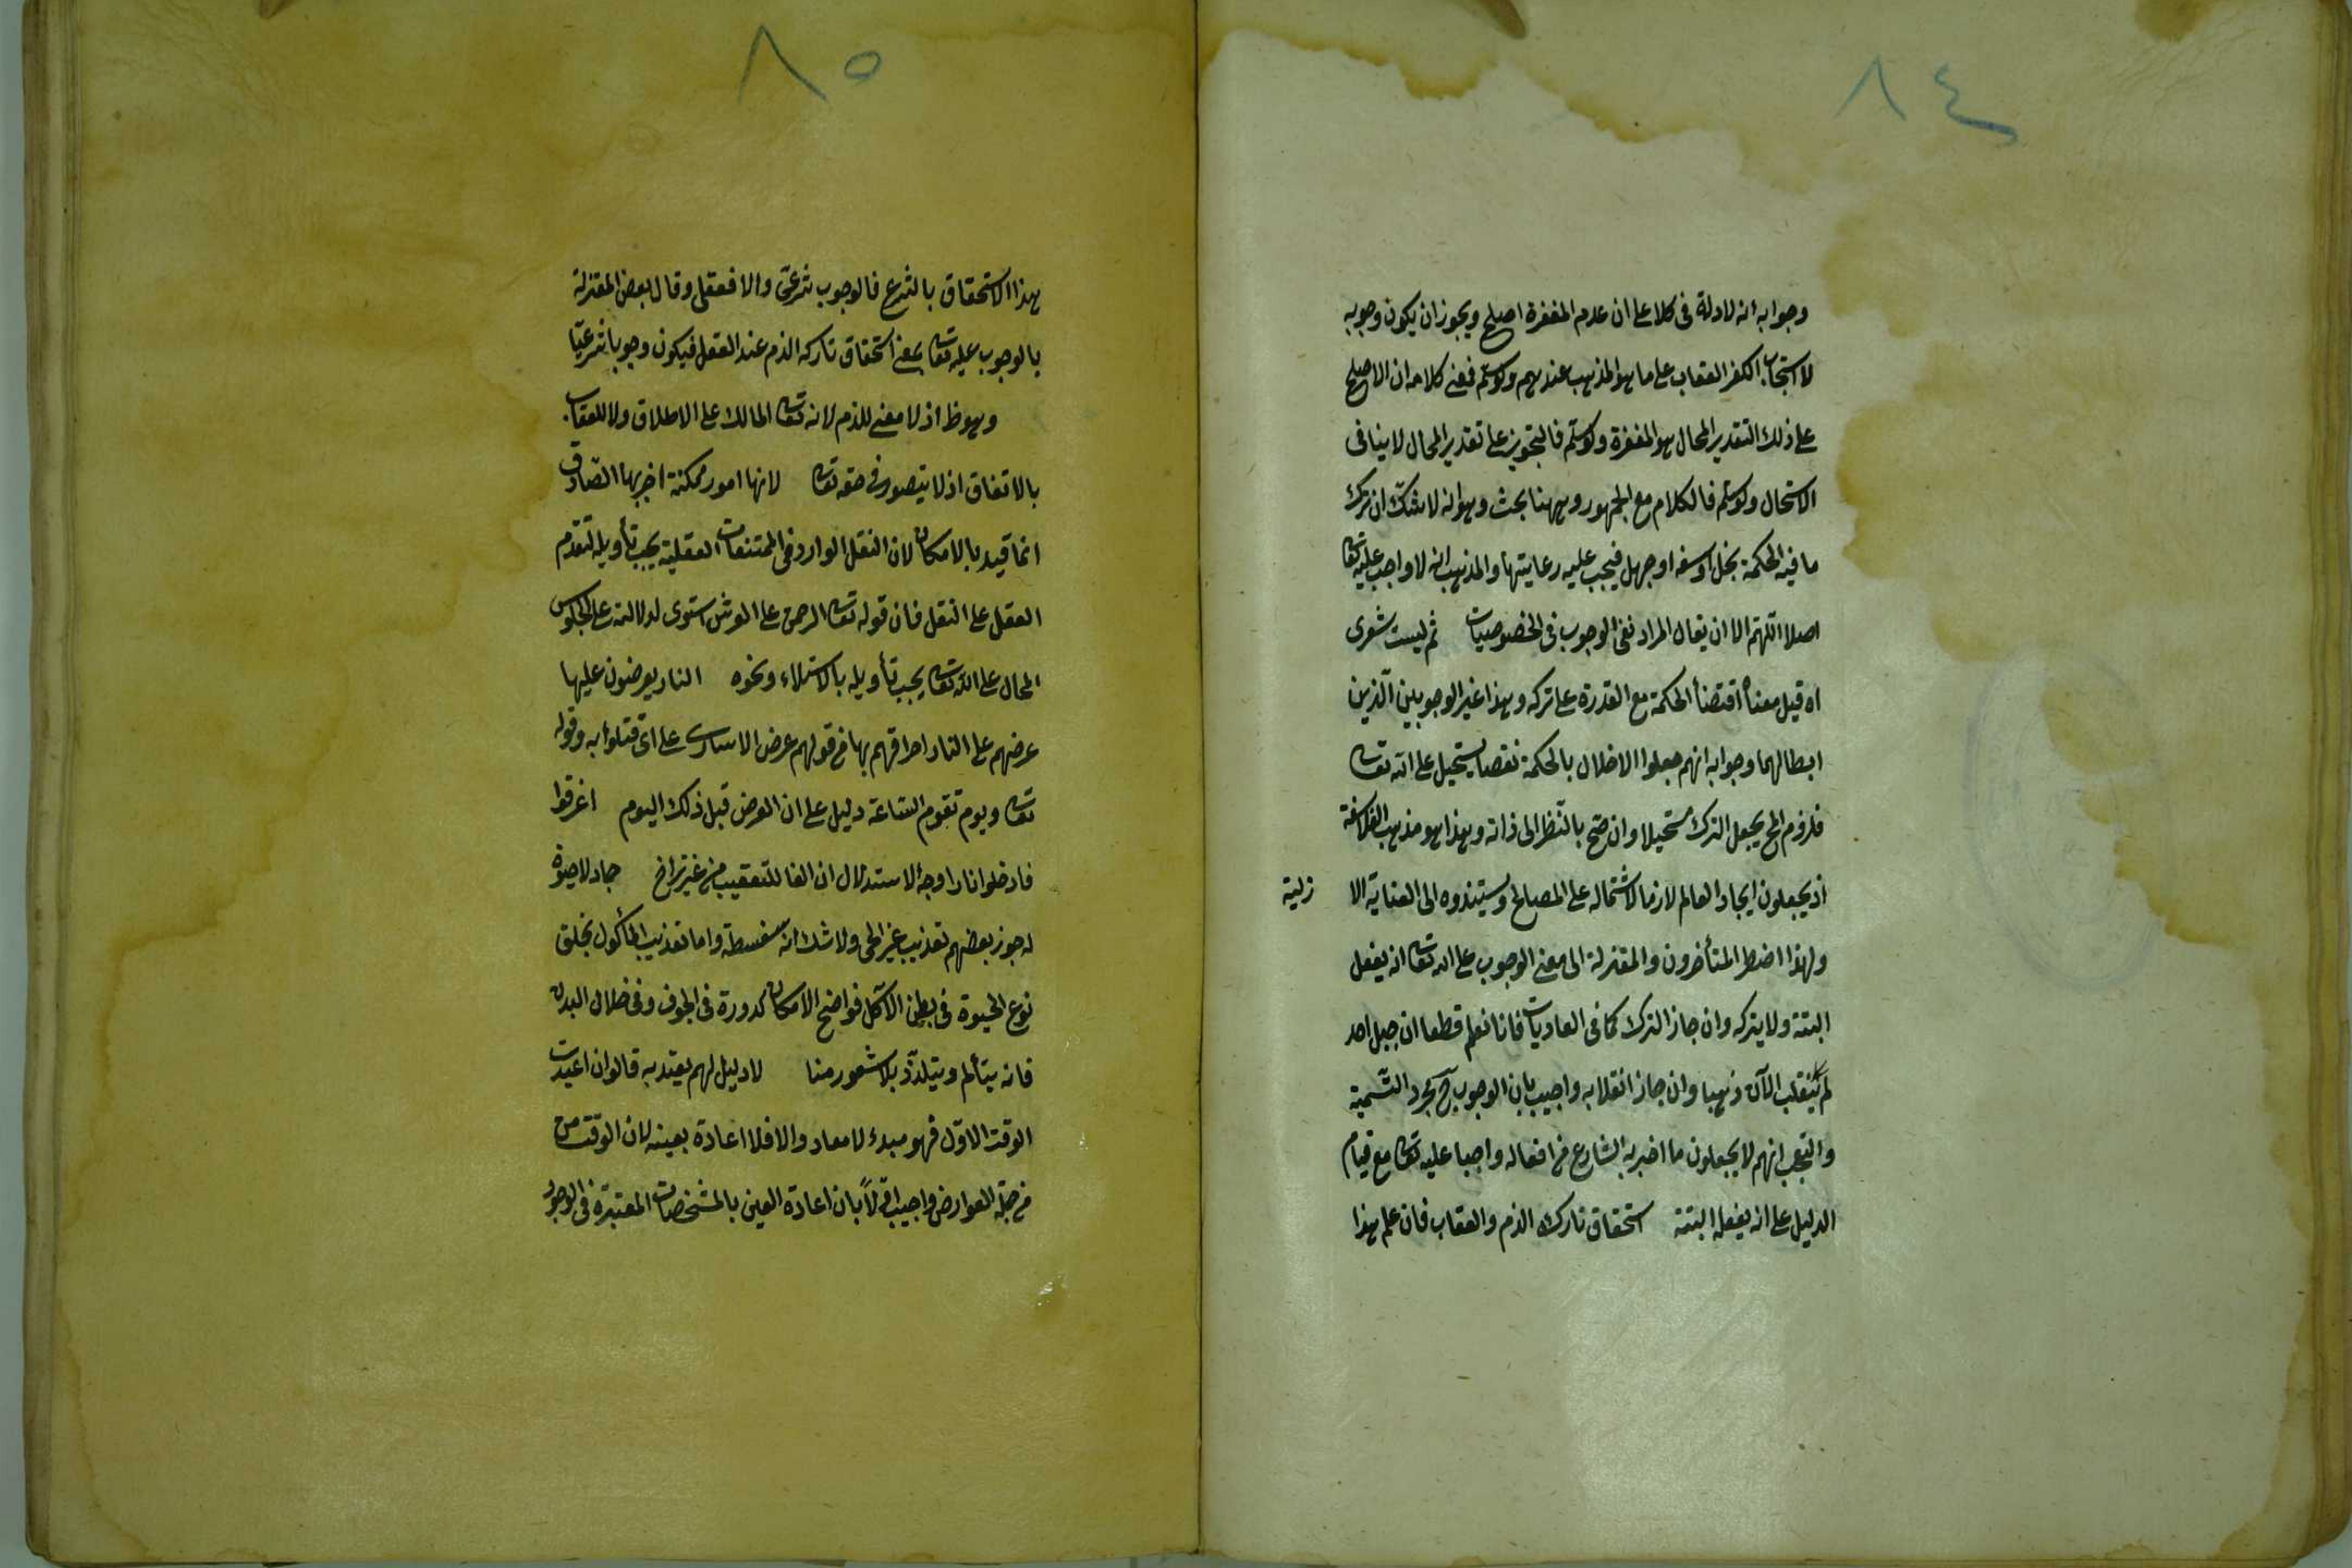 ٨٤
وجوابه انه لا دلالة فى كلا على ان عدم المغفرة اصلح ويجوز ان يكون وجوبه
لاستيجاب الكفر العقاب على ما هو المذهب عندهم ولو سلم فمعنى كلامه ان الاصلح
على ذلك التقدير المحال هو المغفرة ولو سلم فالتجويز على تقدير المحال لا ينافى
الاستحال ولو سلم فالكلام مع الجمهور وههنا بحث وهو انه لا شك ان ترك
ما فيه الحكمة بخل او سفه او جهل فيجب عليه رعايتها والمذهب انه لا واجب عليه تعالى
اصلا اللهم الا ان يقال المراد نفى الوجوب فى الخصوصيات ثم ليست شعرى
اه قيل معناه اقتضأ الحكمة مع القدرة على تركه وهذا غير الوجوبين الذين
ابطالهما وجوابه انهم جعلوا الاخلال بالحكمة نقصا يستحيل على الله تعالى
فلزوم المح يجعل الترك مستحيلا وان صح بالنظر الى ذاته وهذا هو مذهب الفلاسفة
اذ يجعلون ايجاد العالم لازما لاشتماله على المصالح ويسندوه الى العناية الا زلية
ولهذا اضطر المتأخرون والمعتزلة الى معنى الوجوب على الله تعالى انه يفعل
البتة ولا يتركه وان جاز الترك كما فى العاديات فانا نعلم قطعا ان جبل احد
لم ينقلب الآن ذهبا وان جاز انقلابه واجيب بان الوجوب ح مجرد التسمية
والتعجب انهم لا يجعلون ما اخبر به الشارع من افعاله واجبا عليه تعالى مع قيام
الدليل على انه يفعله البتة استحقاق تاركه الذم والعقاب فان علم هذا
٨٥
بهذا الاستحقاق بالشرع فالوجوب شرعى والا فعقلى وقال بعض المعتزلة
بالوجوب عليه تعالى بمعنى استحقاق تاركه الذم عند العقل فيكون وجوبا شرعيا
وهو ظ اذ لا معنى للذم لانه تعالى المالك على الاطلاق ولا للعقاب
بالاتفاق اذ لا يتصور فى حقه تعالى لانها امور ممكنة اخبر بها الصادق
انما قيد بالامكان لان النقل الوارد فى الممتنعات العقلية يجب تأويله لتقدم
العقل على النقل فان قوله تعالى الرحمن على العرش استوى لدلالته على الجلوس
المحال على الله تعالى يجب تأويله بالاستيلاء ونحوه النار يعرضون عليها
عرضهم على النار احراقهم بها من قولهم عرض الاسارى على اى قتلوا به وقوله
تعالى ويوم تقوم الساعة دليل على ان العرض قبل ذلك اليوم اغرقوا
فادخلوا نارا وجه الاستدلال ان الفا للتعقيب من غير تراخ جماد لا حيوة
له جوز بعضهم تعذيب غير الحى ولا شك انه سفسطة واما تعذيب المأكول بخلق
نوع الحيوة فى بطن الآكل فواضح الامكان كدورة فى الجوف وفى خلال البدن
فانه يتألم ويتلذذ بلا شعور منا لا دليل لهم يعتد به قالوا ان اعيدت
الوقت الاول فهو مبدء لا معاد والا فلا اعادة بعينه لان الوقت من
من جملة العوارض واجيب اولا بان اعادة العين بالمشخصات المعتبرة فى الوجود